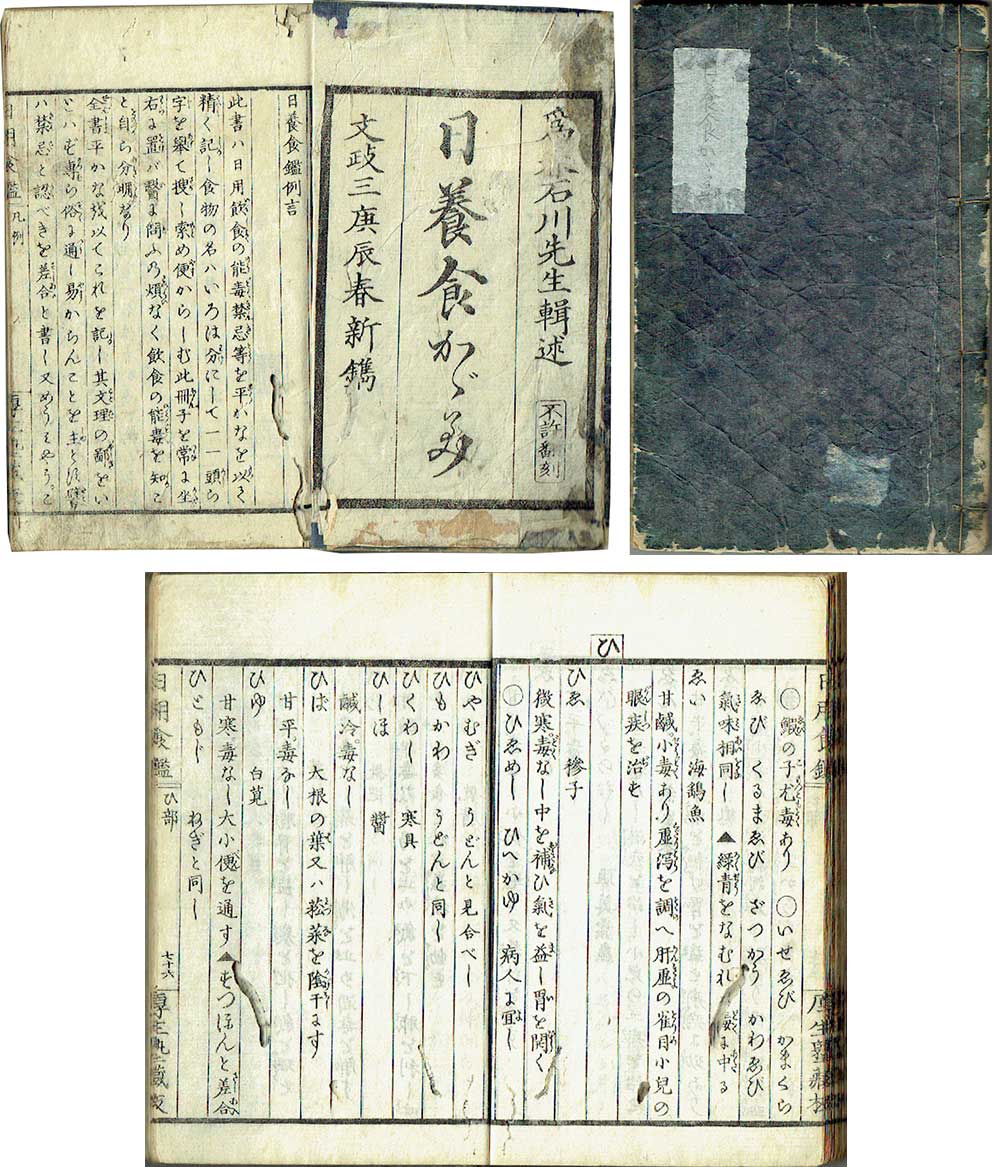 石川先生輯述
不許翻刻
日養食かゞみ
文政三庚辰春新鐫
日養食鑑例言
此書ハ日用飲食の能毒禁忌等を平かなを以て
精く記し食物の名ハいろは分にして一一頭ら
字を挙て捜し索め便からしむ此冊子を常に坐
右に置バ醫に問ふの煩なく飲食の能毒を知こ
と自ら分明なり
全書平かなを以てこれを記し其文理の鄙をい
とハず専ら俗に通し易からんことを主とす
ハ禁忌と認べきを差合と書し又
日用食鑑 凡例
日用食鑑
厚生塾蔵板
鰕の子尤毒あり いせゑび かまくら
ゑび くるまゑび ざつかう かわゑび
氣味相同し ▲緑青をなむれ 毒に中る
ゑい 海鷂魚
甘鹹小毒あり虚瀉を調へ肝虚の雀目小兒の
眼疾を治す
ひ
ひゑ 穇子
微寒毒なし中を補ひ氣を益し胃を開く
ひゑめし ひへかゆ 病人に宜し
ひやむぎ うどんと見合べし
ひもかわ うどんと同し
ひぐわし 寒具
ひしほ 醬
鹹冷毒なし
ひば 大根の葉又ハ菘菜を陰干にす
甘平毒なし
ひゆ 白莧
甘寒毒なし大小便を通す▲すつほんと差合
ひともじ ねぎと同し
日用食鑑 ひ部
七十六
厚生塾蔵板